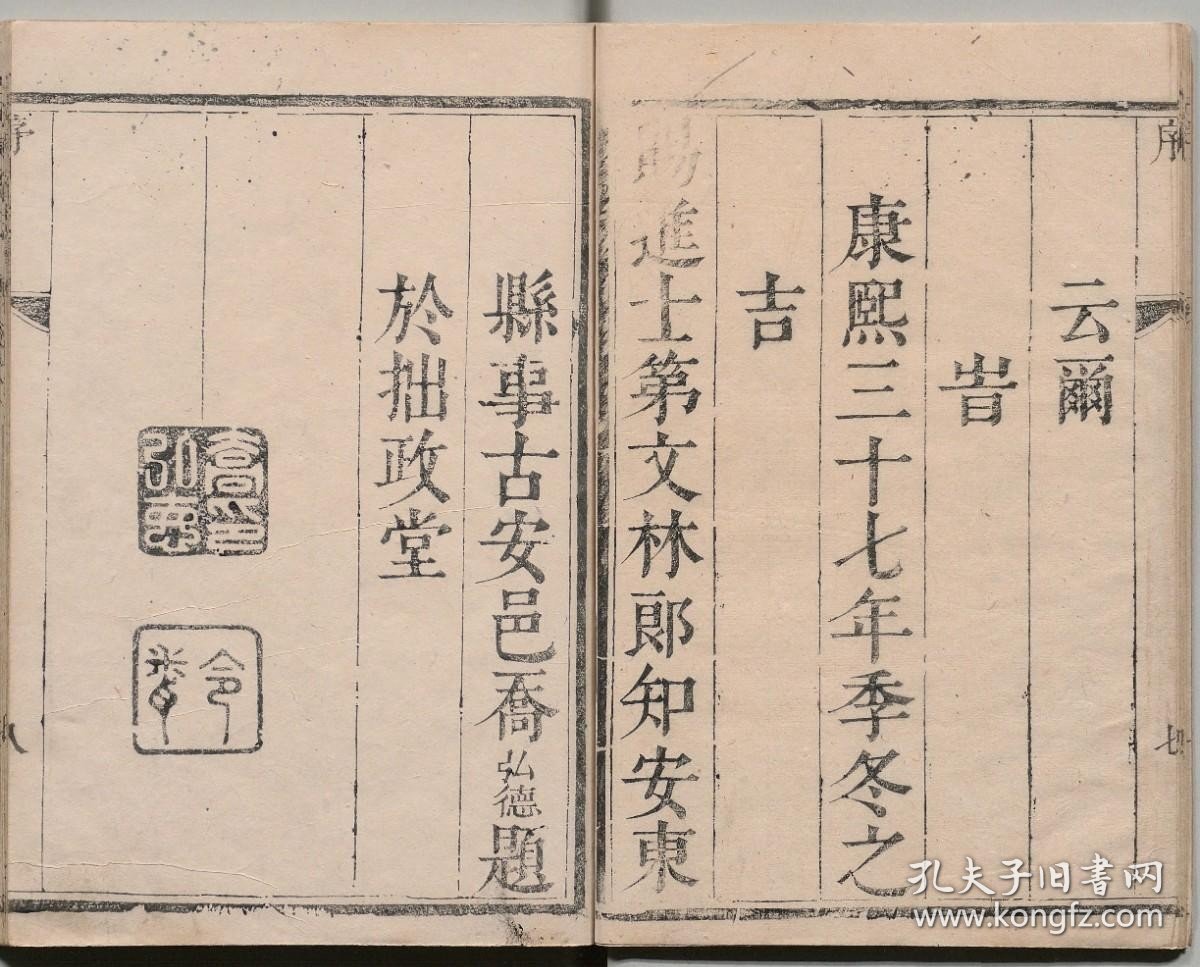 序
云爾
旹
康熙三十七年季冬之
吉
賜進士第文林郎知安東
七
縣事古安邑喬弘德題
於拙政堂
序
八
孔夫子旧书网
www.kongfz.com